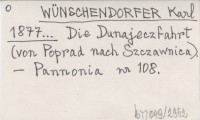 o
WÜNSCHENDORFER Karl
1877... Die Dunajeczfahrt
(von Poprad nach Szczawnica).
— Pannonia nr 108.